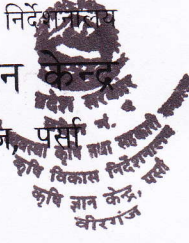 निर्देशनालय
न केन्द्र
प्रदेश सरकार
प्रदेश नं. २
, पर्सा
व्यवस्था कृषि तथा सहकारी
कृषि विकास निर्देशनालय
कृषि ज्ञान केन्द्र, पर्सा
वीरगंज